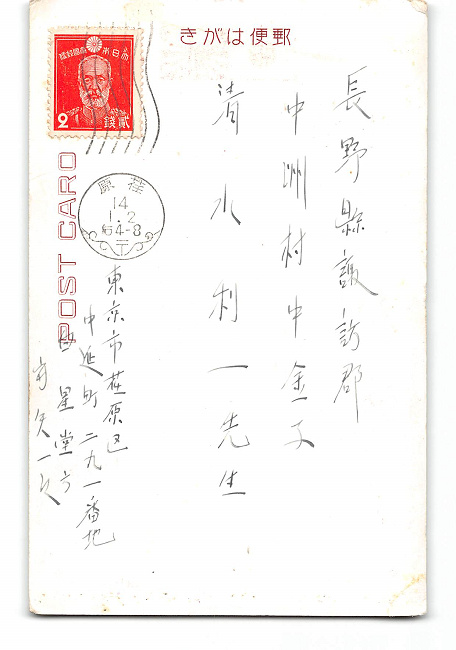 きがは便郵
長野縣諏訪郡
中洲村中金子
清水利一先生
東京市荏原区
中延町二九一番地
星堂方
守矢一
POST CARD
大日本帝國郵便
2
貳錢
荏原
14
1.2
后4-8